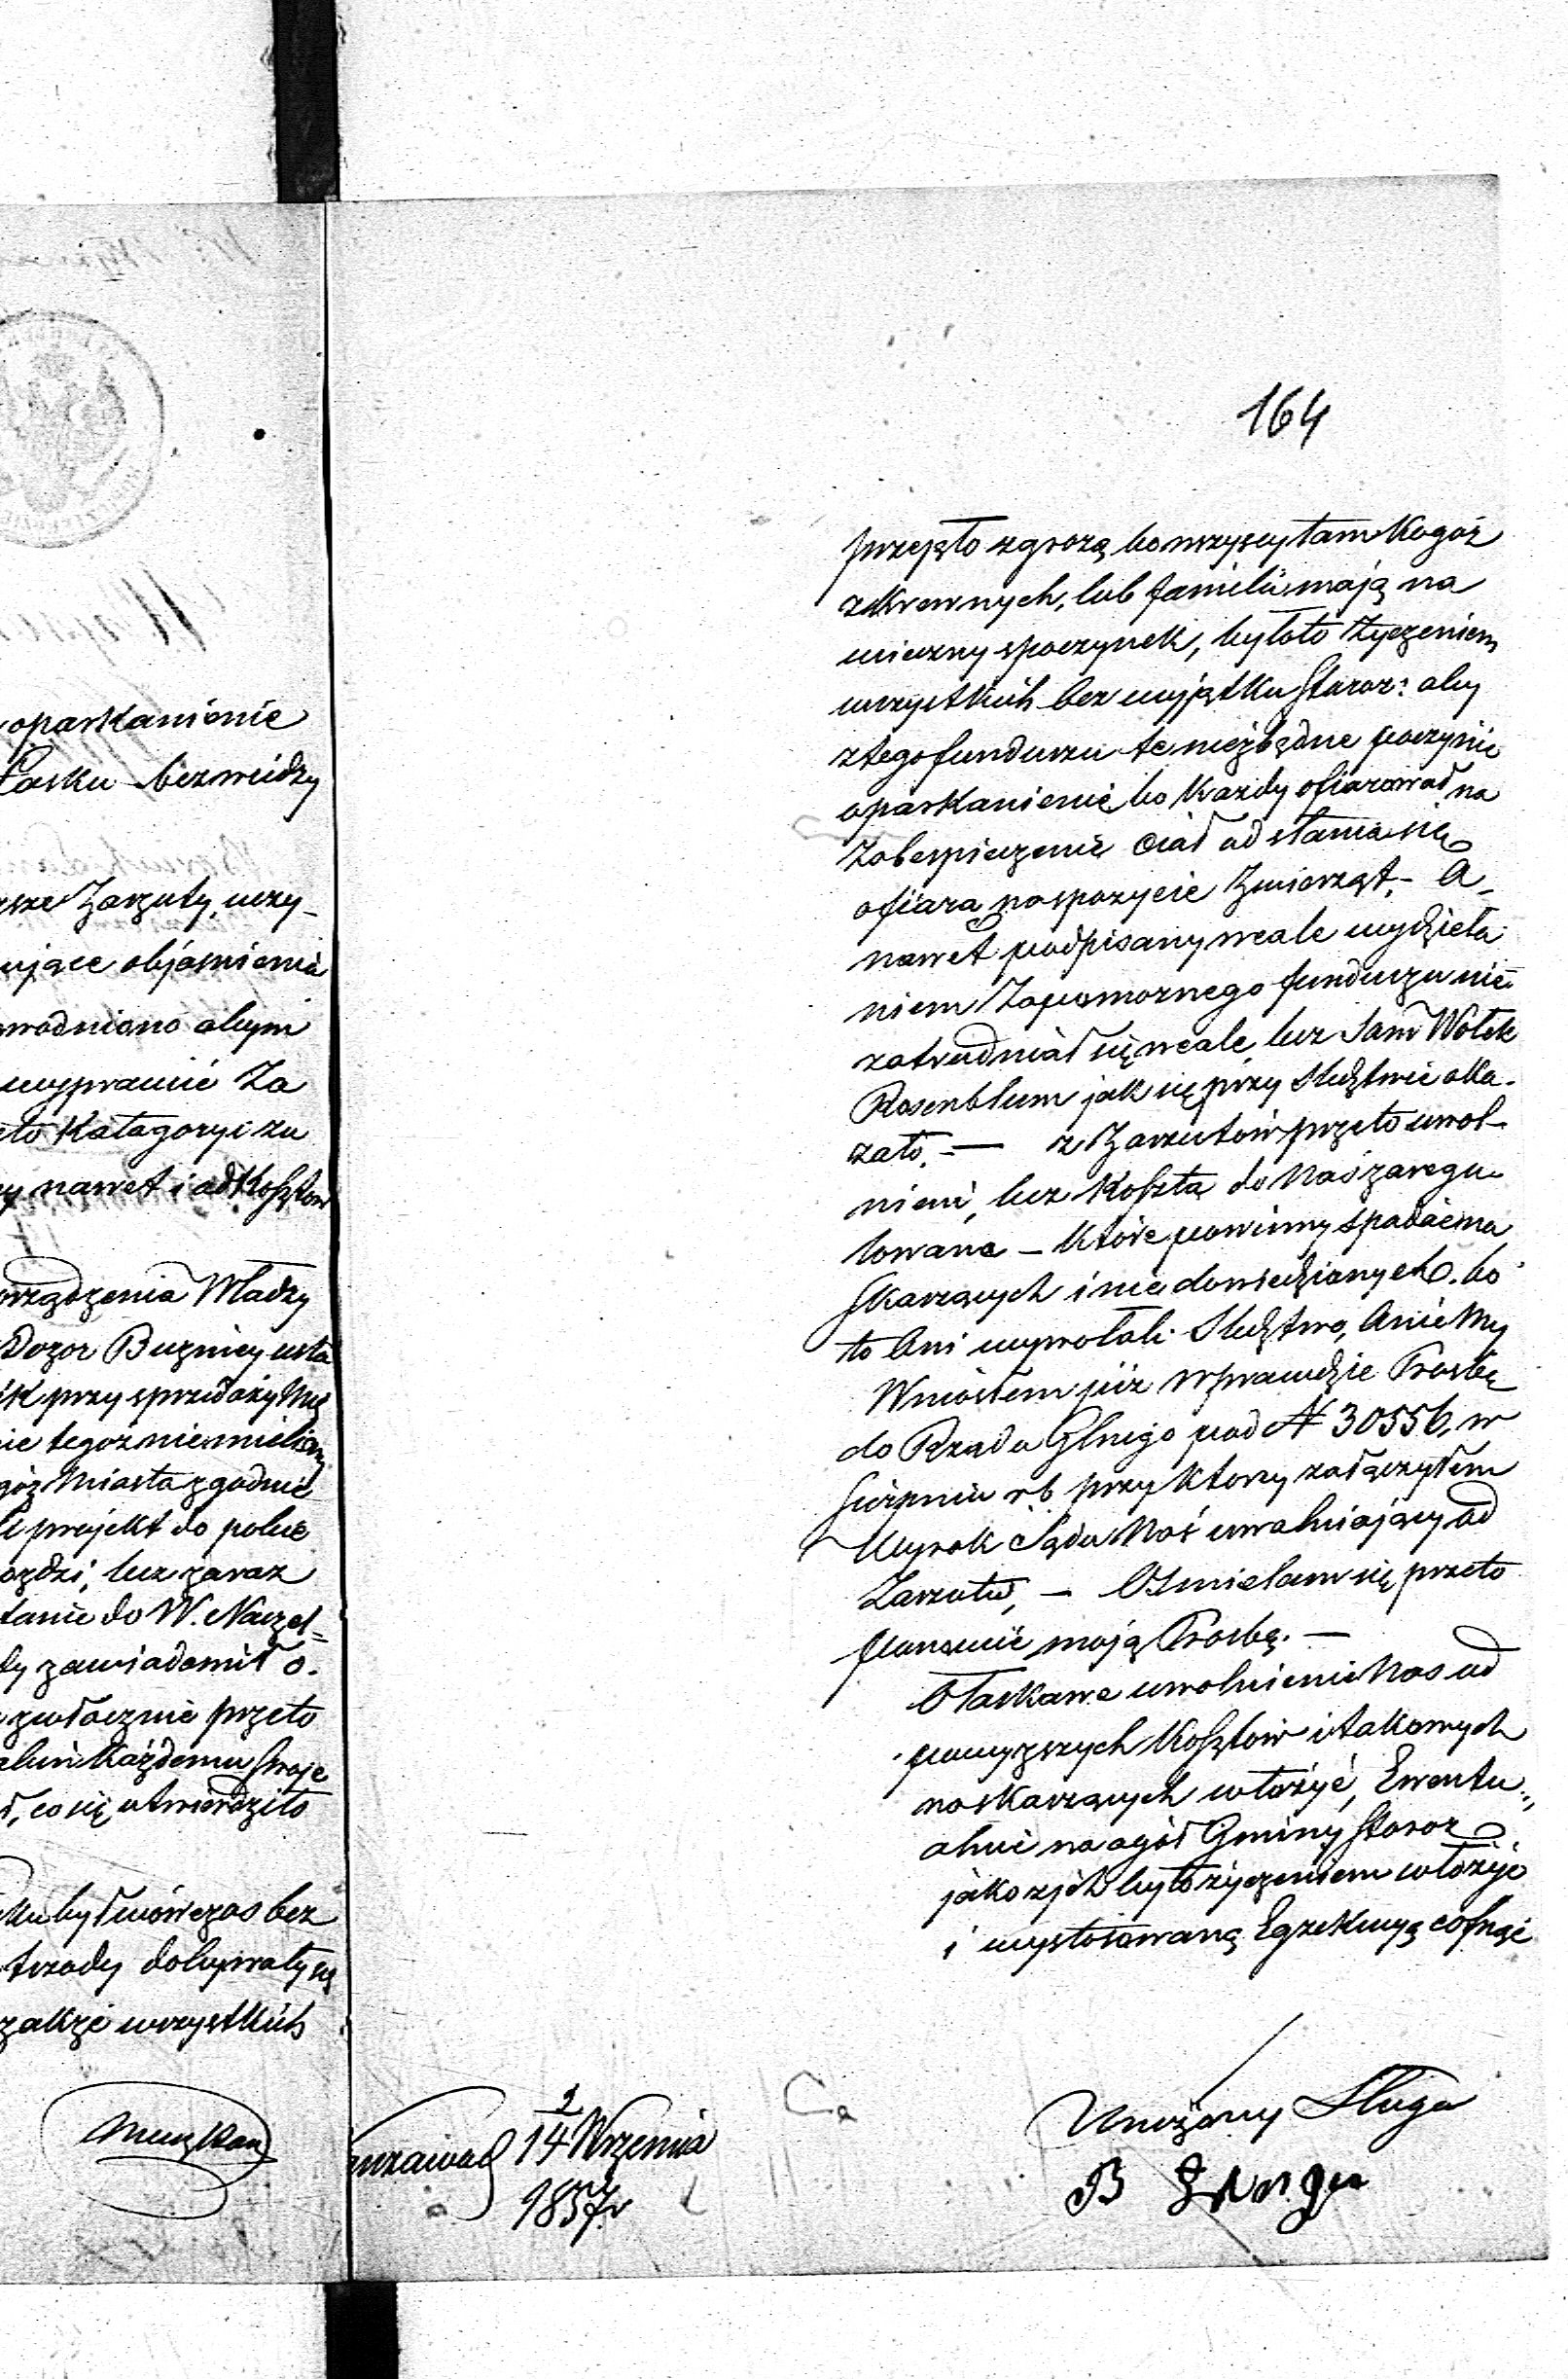 opaskanienie
Łasku bezwiedzy
Zarzuty, uczy-
ujące objasnienia
wodniono abym
wyprawić Za
to Katagoryi zu
nawet i od Kosztow
rządzenia Władzy
Dozor Buznicy usta
przy sprzedaży
tegoż nie mieli
Miasta zgodnie
projekt do polic
lecz zaraz
tanie do W. Naczel=
dy zawiadomił o.
zwłocznie przeto
Każdemu swoje
co się utwierdziło
był wówczas bez
trzody dobywały się
zakże wszystkich
164
przejęło zgrozą bo wszyscy tam Kogoś
z Krewnych, lub familii mają na
wieczny spoczynek, było to Życzeniem
wszystkich bez wyjątku Staroz: aby
z tego funduszu te niezbędne poczynić
oparkanienie bo każdy ofiarował na
Zabespieczenie Ciał od stania się
ofiara na spozycie Zwierząt,- A
nawet podpisany wcale wydziela
niem Zapomoznego funduszu nie
zatrudniał się wcale lecz sam Wołek
Rosenblum jak się przy Sledztwie oka-
zało. — z Zarzutów przeto uwol-
nieni, lecz Koszta do Nas zaregu-
lowane — Które powinny spadać na
Skarzących i nie dowiedzionych. bo
to Oni wywołali Sledztwo, Anie My
Wniosłem już wprawdzie Prosbę
do Rządu Glnego pod N 30556, w
Sierpniu r.b przy Ktorej załączyłem
Wyrok Sądu Nas uwalniający od
Zarzutu, — Osmielam się przeto
ponowić moją Prosbę. —
O łaskawe uwolnienie Nas od
powyzszych Kosztów i takowych
na skarzących włożyć, Ewentu-
alnie na ogół Gminy Staroz
jako z jich było życzeniem włożyć
i wystosowaną Egzekucyą cofnąć
Unizony Sługa
B
2
14 Wrzesnia
1857 r